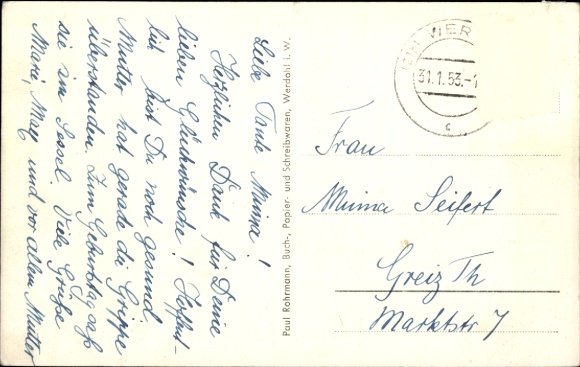 Liebe Tante Minna!
Herzlichen Dank für Deine
lieben Glückwünsche! Hoffent-
lich bist Du noch gesund.
Mutter hat gerade die Grippe
überstanden. Zum Geburtstag saß
sie im Sessel. Viele Grüße
Marie, Max und vor allem Mutter
Paul Rohrmann, Buch-, Papier- und Schreibwaren, Werdohl i. W.
WER
31.1.53.-1
c
Frau
Minna Seifert
Greiz Th
Marktstr 7